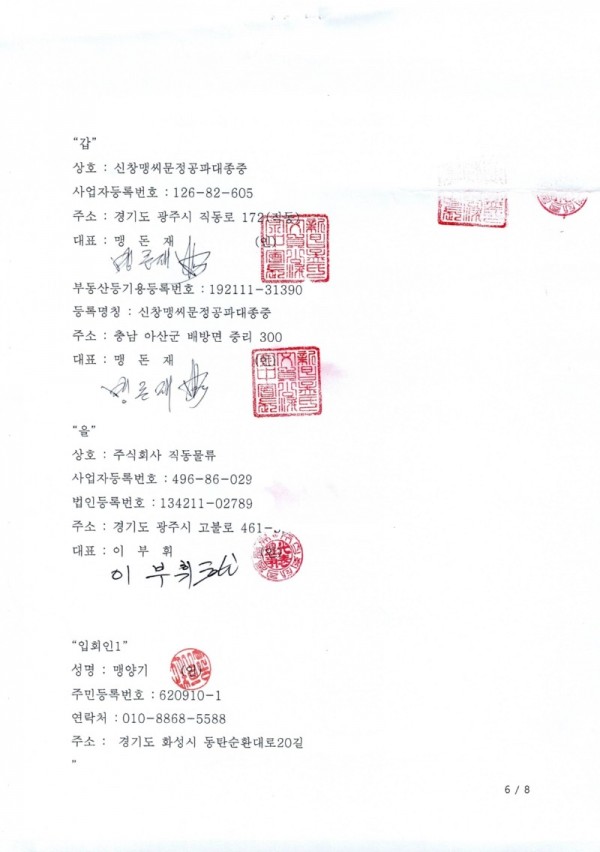 “갑”
상호 : 신창맹씨문정공파대종중
사업자등록번호 : 126-82-605
주소 : 경기도 광주시 직동로 172(직동)
대표 : 맹 돈 재 (인)
맹돈재
부동산등기용등록번호 : 192111-31390
등록명칭 : 신창맹씨문정공파대종중
주소 : 충남 아산군 배방면 중리 300
대표 : 맹 돈 재 (인)
맹돈재
“을”
상호 : 주식회사 직동물류
사업자등록번호 : 496-86-029
법인등록번호 : 134211-02789
주소 : 경기도 광주시 고불로 461-
대표 : 이 부 휘 (인)
이 부 휘
“입회인1”
성명 : 맹양기 (인)
주민등록번호 : 620910-1
연락처 : 010-8868-5588
주소 : 경기도 화성시 동탄순환대로20길
”
6 / 8